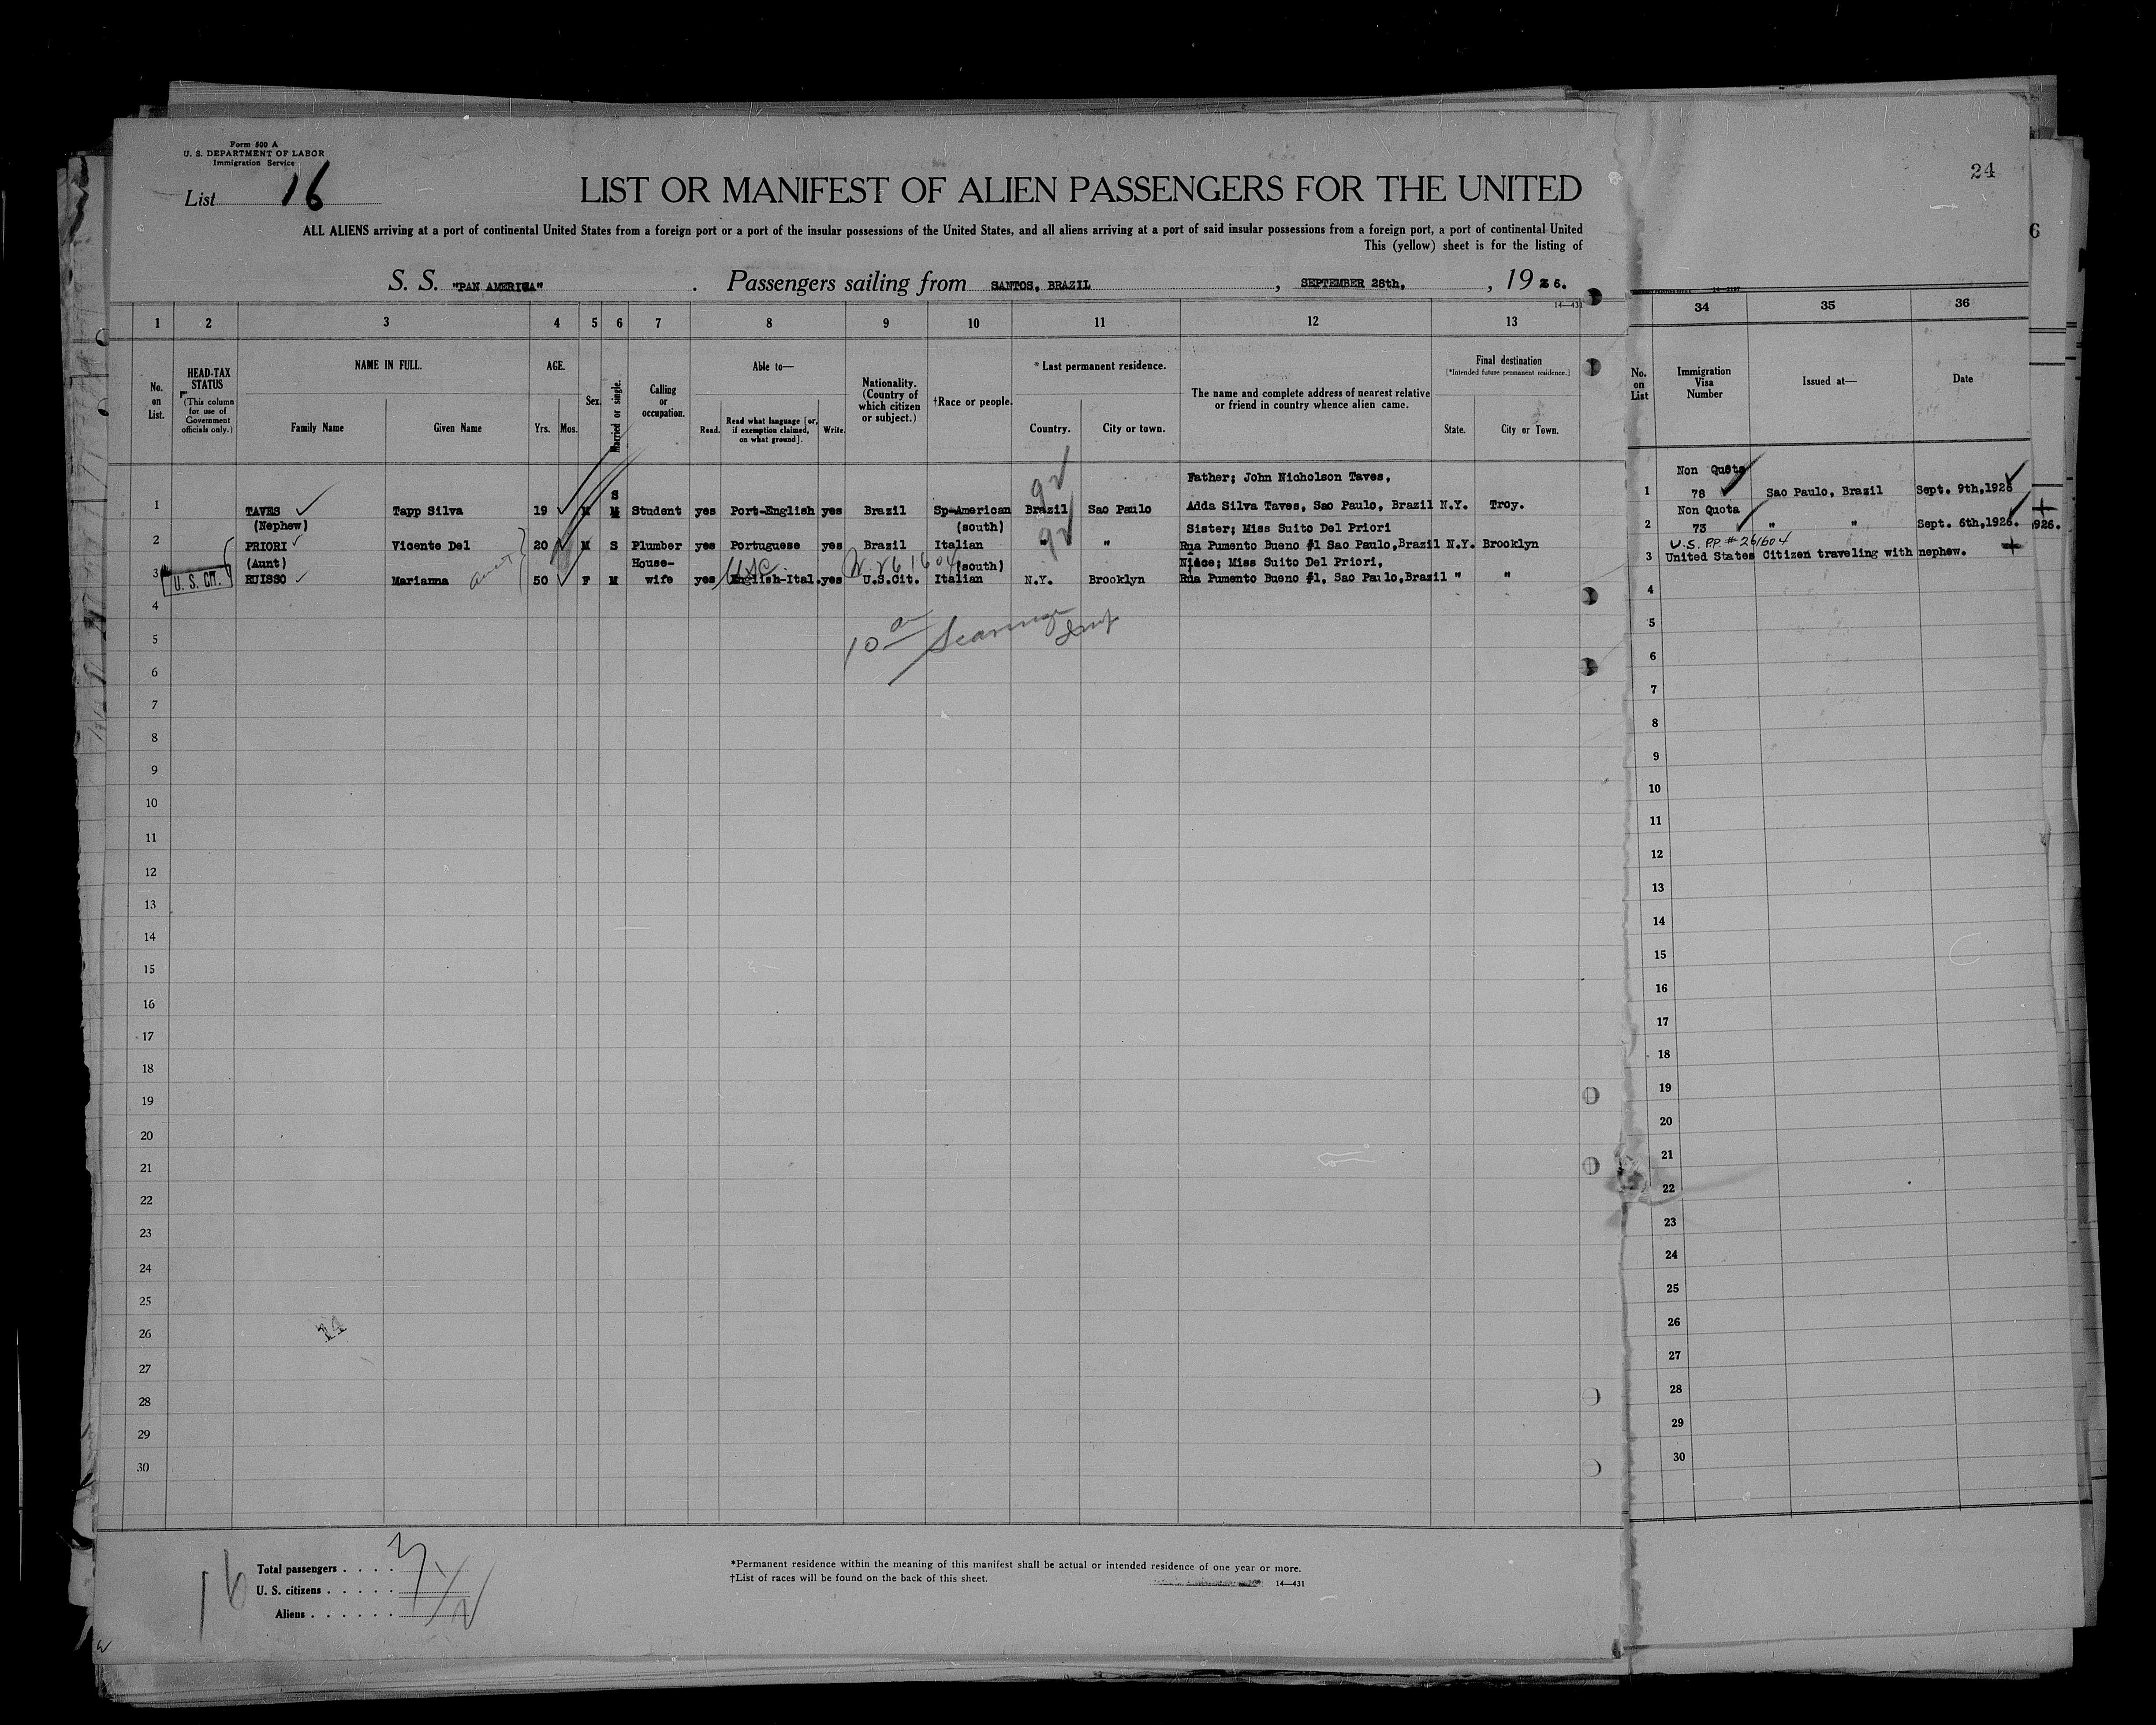 Form 500 A
U. S. DEPARTMENT OF LABOR
Immigration Service
List 16
24
LIST OR MANIFEST OF ALIEN PASSENGERS FOR THE UNITED
ALL ALIENS arriving at a port of continental United States from a foreign port or a port of the insular possessions of the United States, and all aliens arriving at a port of said insular possessions from a foreign port, a port of continental United
This (yellow) sheet is for the listing of
6
S. S. "PAN AMERICA" . Passengers sailing from SANTOS, BRAZIL , SEPTEMBER 28th. , 1926.
14—431
1 2 3 4 5 6 7 8 9 10 11 12 13 34 35 36
No. on List.
HEAD-TAX STATUS
(This column for use of Government officials only.)
NAME IN FULL.
Family Name Given Name
AGE.
Yrs. Mos.
Sex.
Married or single.
Calling or occupation.
Able to—
Read. Read what language [or, if exemption claimed, on what ground]. Write.
Nationality. (Country of which citizen or subject.)
†Race or people.
* Last permanent residence.
Country. City or town.
The name and complete address of nearest relative or friend in country whence alien came.
Final destination
[*Intended future permanent residence.]
State. City or Town.
No. on List
Immigration Visa Number
Issued at—
Date
Father; John Nicholson Taves, Non Quota
1 TAVES Tapp Silva 19 M S Student yes Port-English yes Brazil Sp-American Brazil Sao Paulo Adda Silva Taves, Sao Paulo, Brazil N.Y. Troy. 1 78 Sao Paulo, Brazil Sept. 9th,1926
(Nephew) (south) Sister; Miss Suito Del Priori Non Quota
2 PRIORI Vicente Del 20 M S Plumber yes Portuguese yes Brazil Italian " " Rua Pumento Bueno #1 Sao Paulo,Brazil N.Y. Brooklyn 2 73 " " Sept. 6th,1926. 926.
(Aunt) House- (south) Niece; Miss Suito Del Priori, U.S. P.P # 261604
3 U. S. CIT. RUISSO Marianna Aunt 50 F M wife yes English-Ital. yes U.S.Cit. Italian N.Y. Brooklyn Rua Pumento Bueno #1, Sao Paulo,Brazil " " 3 United States Citizen traveling with nephew.
USC
4 4
5 5
6 6
7 7
8 8
9 9
10 10
11 11
12 12
13 13
14 14
15 15
16 16
17 17
18 18
19 19
20 20
21 21
22 22
23 23
24 24
25 25
26 26
27 27
28 28
29 29
30 30
16
Total passengers . . . . 3
U. S. citizens . . . . . 1
Aliens . . . . . . 2
*Permanent residence within the meaning of this manifest shall be actual or intended residence of one year or more.
†List of races will be found on the back of this sheet.
14—431